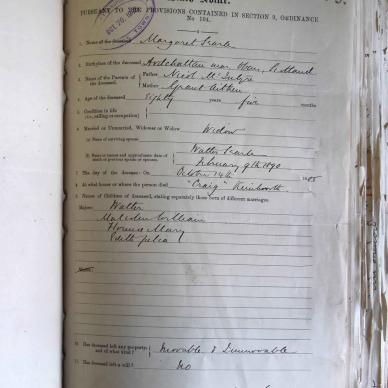 PURSUANT TO THE PROVISIONS CONTAINED IN SECTION 9, ORDINANCE
No. 104.
1. Name of the deceased Margaret Searle
2. Birthplace of the deceased Ardchattan near Oban, Scotland
3. Names of the Parents of the deceased. Father Nicol McIntyre
Mother Grant Aitken
4. Age of the deceased Eighty years, five months
5. Condition in life
(i.e., calling or occupation)
6. Married or Unmarried, Widower or Widow Widow
Name of surviving spouse
Name or names and approximate date of death of previous spouse or spouses. Walter Searle
February 9th 1890
7. The day of the decease: On October 14th
8. At what house or where the person died "Craig" Kenilworth
9. Names of Children of deceased, stating separately those born of different marriages.
Majors: Walter
Malcolm William
Florence Mary
Edith
Minors:
10. Has deceased left any property, and of what kind? Movable & Immovable
11. Has deceased left a will? No